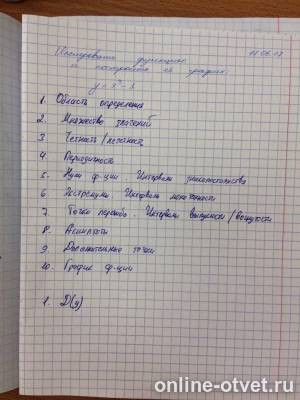 Исследовать функцию
и построить её график
y = x
1. Область определения
2. Множество значений
3. Четность/нечетность
4. Периодичность
5. Нули ф-ции Интервалы знакопостоянства
6. Экстремумы Интервалы монотонности
7. Точки перегиба. Интервалы выпуклости/вогнутости
8. Асимптоты
9. Дополнительные точки
10. График ф-ции
1. D(y)
online-otvet.ru